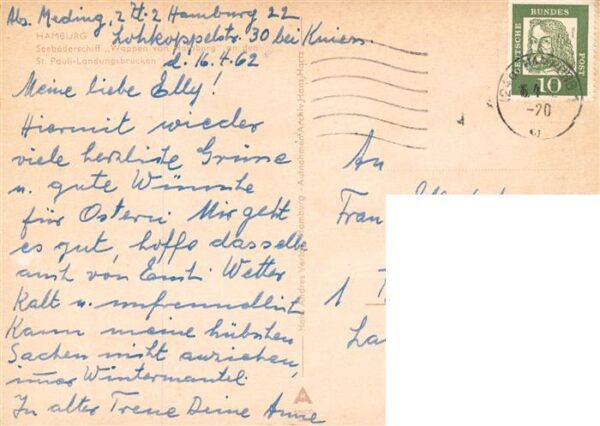 Abs. Meding, z Zt. 2 Hamburg 22
Lohkoppelstr. 30 bei
HAMBURG
Seebäderschiff "Wappen von Hamburg" an den
St. Pauli-Landungsbrücken
d. 16.4.62
Meine liebe Elly!
Hiermit wieder
viele herzliche Grüsse
u. gute Wünsche
für Ostern. Mir geht
es gut, hoffe dasselbe
auch von Euch. Wetter
kalt u. unfreundlich
Kann meine hübschen
Sachen nicht anziehen,
immer Wintermantel.
In alter Treue Deine Anne
Hans Andres Verlag Hamburg - Aufnahmen: Archiv Hans Hartz
DEUTSCHE
BUNDES
POST
10
-20
An
Frau
1
La